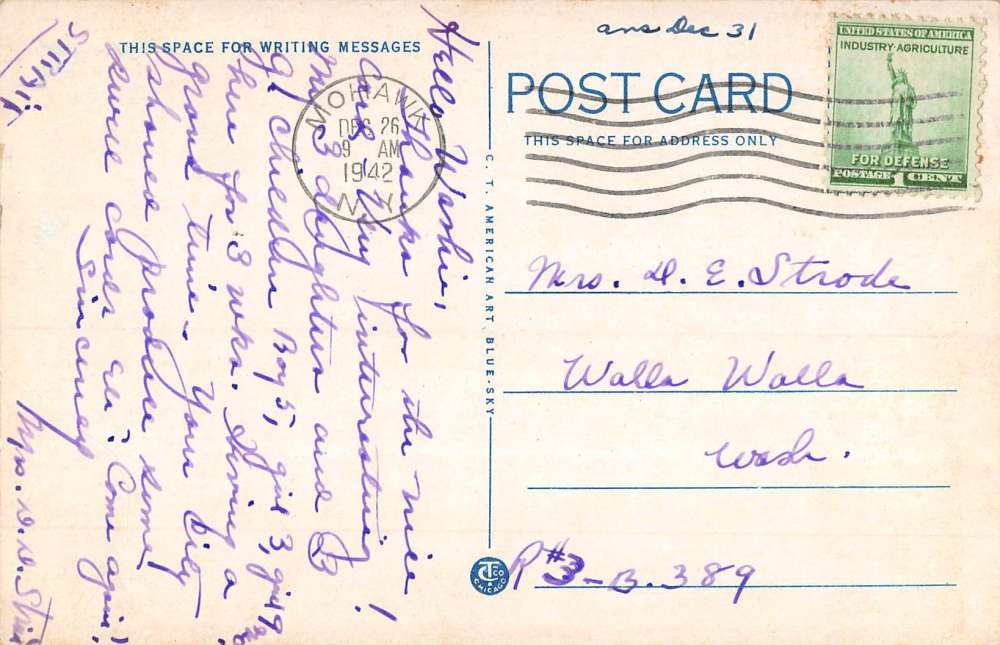 THIS SPACE FOR WRITING MESSAGES
Hello Washie,
Thanks for the nice
card. Very interesting!
My 3 daughters and
gr children Boy 5, girl 3, girl 9
here for 3 wks. Having a
grand time. Your City
should produce some
swell cards eh? Come again!
Sincerely
Mrs. D. D.
MOHAWK
DEC 26
9 AM
1942
N.Y.
C. T. AMERICAN ART, BLUE-SKY
CT CO
CHICAGO
ans Dec 31
POST CARD
THIS SPACE FOR ADDRESS ONLY
UNITED STATES OF AMERICA
INDUSTRY AGRICULTURE
FOR DEFENSE
POSTAGE 1 CENT
Mrs. D. E. Strode
Walla Walla
Wash.
R#3-B.389